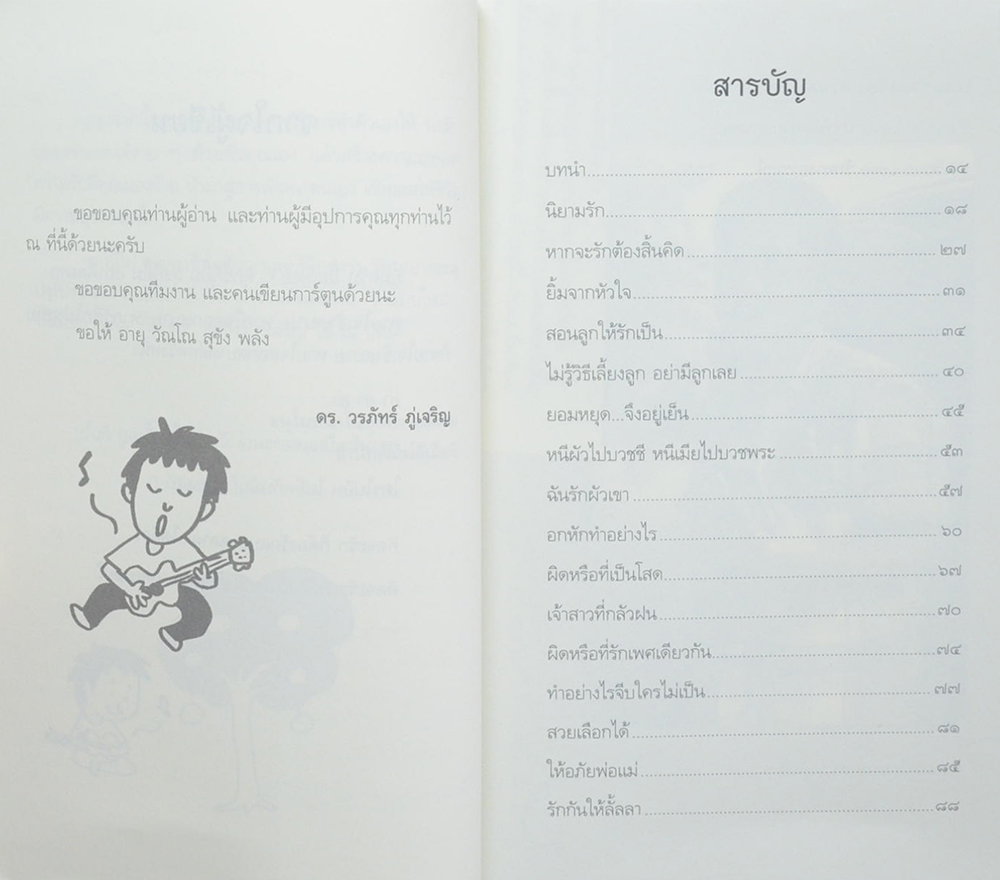 ขอขอบคุณท่านผู้อ่าน และท่านผู้มีอุปการคุณทุกท่านไว้
ณ ที่นี้ด้วยนะครับ
ขอขอบคุณทีมงาน และคนเขียนการ์ตูนด้วยนะ
ขอให้ อายุ วัณโณ สุขัง พลัง
ดร. วรภัทร์ ภู่เจริญ
สารบัญ
บทนำ ๑๔
นิยามรัก ๑๘
หากจะรักต้องสิ้นคิด ๒๗
ยิ้มจากหัวใจ ๓๑
สอนลูกให้รักเป็น ๓๔
ไม่รู้วิธีเลี้ยงลูก อย่ามีลูกเลย ๔๐
ยอมหยุด...จึงอยู่เย็น ๔๕
หนีผัวไปบวชชี หนีเมียไปบวชพระ ๕๓
ฉันรักผัวเขา ๕๗
อกหักทำอย่างไร ๖๐
ผิดหรือที่เป็นโสด ๖๗
เจ้าสาวที่กลัวฝน ๗๐
ผิดหรือที่รักเพศเดียวกัน ๗๔
ทำอย่างไรจีบใครไม่เป็น ๗๗
สวยเลือกได้ ๘๑
ให้อภัยพ่อแม่ ๘๕
รักกันให้ลั้ลลา ๘๘